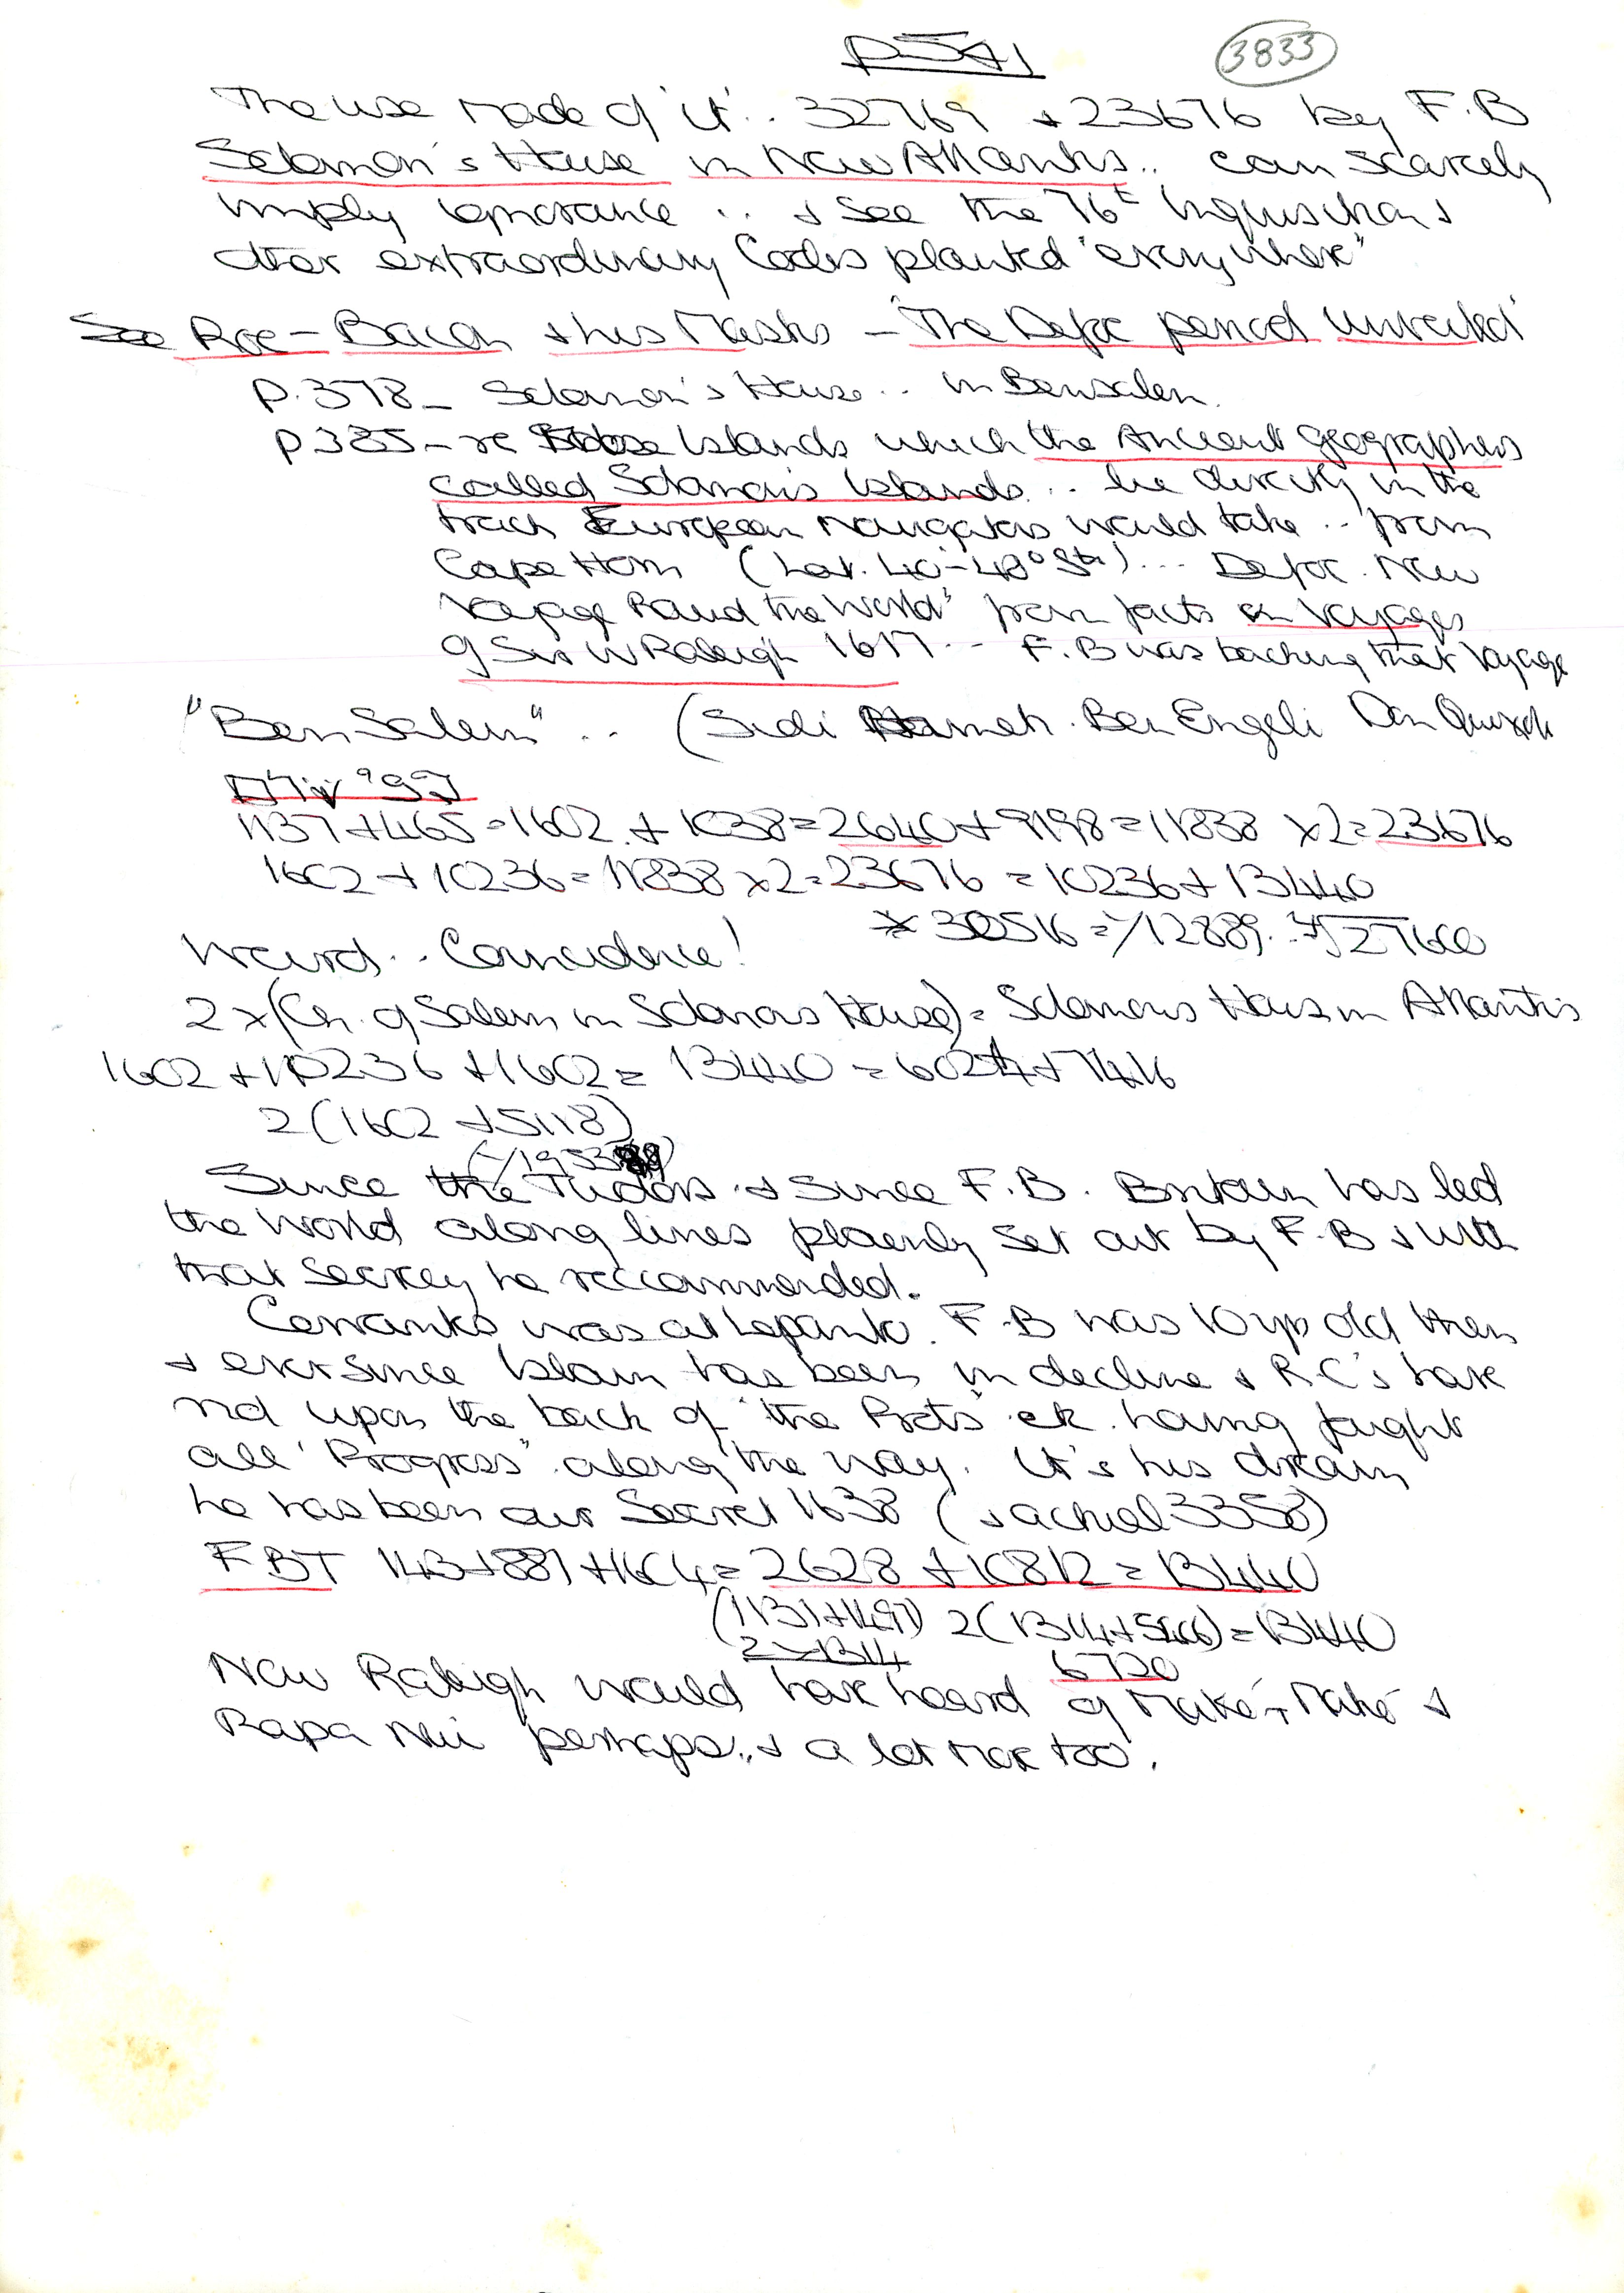 p571
3833
The use made of 'it'.. 32769 + 23676 by F.B
Solomon's House in New Atlantis.. can scarcely
imply ignorance .. + see the 76t Inquisition +
other extraordinary Codes planted "everywhere"
See Roe - Bacon + his Masks - 'The Defoe period unveiled'
p.378 - Solomon's House.. in Bensalem.
p385 - re those Islands which the Ancient geographers
called Solomon's Islands... lie directly in the
track European Navigators would take .. from
Cape Horn (Lat. 40-48° Sth) ... Defoe. New
Voyage Round the World' from facts on Voyages
of Sir W Raleigh 1617 .. F.B was backing that Voyage
"Ben Salem" .. (Sidi Hameh. Ben Engeli Don Quixote
1137+465=1602.+1038=2640+9198=11838 x2=23676
1602+10236=11838 x2=23676 = 10236+13440
Weird.. Coincidence!
* 30516 = √12889. 27600
2x(Ch. of Salem in Solomons House) = Solomons House in Atlantis
1602+10236+1602=13440=6024+7416
2(1602+5118)
Since the Tudors + since F.B. Britain has led
the World along lines plainly set out by F.B + with
that secrecy he reccommended.
Cervantes was at Lepanto. F.B was 10 yrs old then
+ ever since Islam has been in decline + R.C's have
rid upon the back of "the Prots" etc. having fought
all "Progress" along the way. It's his dream
he has been our Secret 1638 (+ actual 3358)
FBT 143+881+1604=2628+10812=13440
(1131+1497) 2(1314+5406)=13440
2x1314
6720
Now Raleigh would have heard of Make-Make +
Rapa Nui perhaps.. + a lot more too.